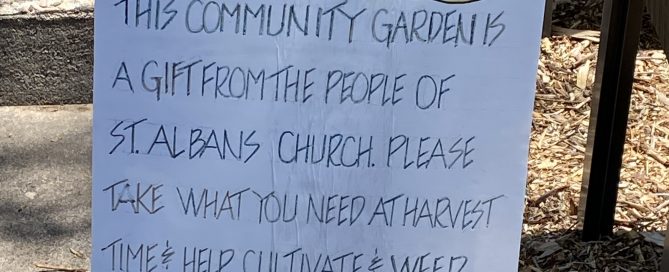 THIS COMMUNITY GARDEN IS
A GIFT FROM THE PEOPLE OF
ST. ALBANS CHURCH. PLEASE
TAKE WHAT YOU NEED AT HARVEST
TIME & HELP CULTIVATE & WEED